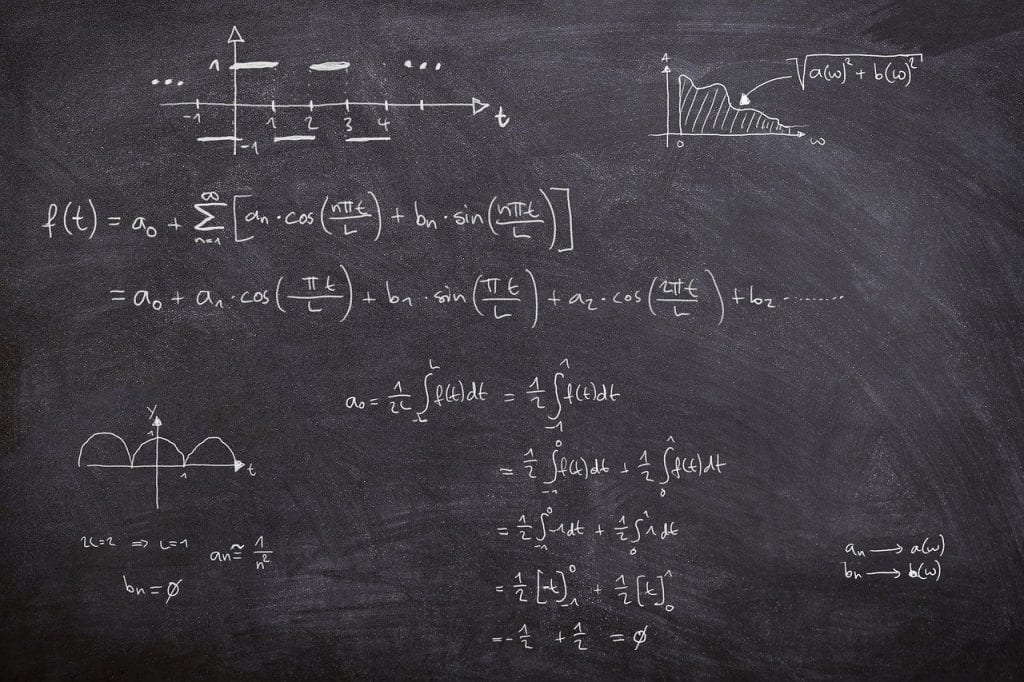 1 ... ...
-1 1 2 3 4 t
-1
A √(a(ω)² + b(ω)²)
0 ω
f(t) = a₀ + ∑ₙ₌₁^∞ [aₙ · cos(nπt/L) + bₙ · sin(nπt/L)]
= a₀ + a₁ · cos(πt/L) + b₁ · sin(πt/L) + a₂ · cos(2πt/L) + b₂ ........
a₀ = 1/2L ∫₋L^L f(t)dt = 1/2 ∫₋₁^1 f(t)dt
= 1/2 ∫₋₁^0 f(t)dt + 1/2 ∫₀^1 f(t)dt
= 1/2 ∫₋₁^0 -1dt + 1/2 ∫₀^1 1dt
= 1/2 [-t]₋₁^0 + 1/2 [t]₀^1
= -1/2 + 1/2 = ∅
y
1
1 t
2L=2 ⇒ L=1 aₙ ≅ 1/n²
bₙ = ∅
aₙ → a(ω)
bₙ → b(ω)